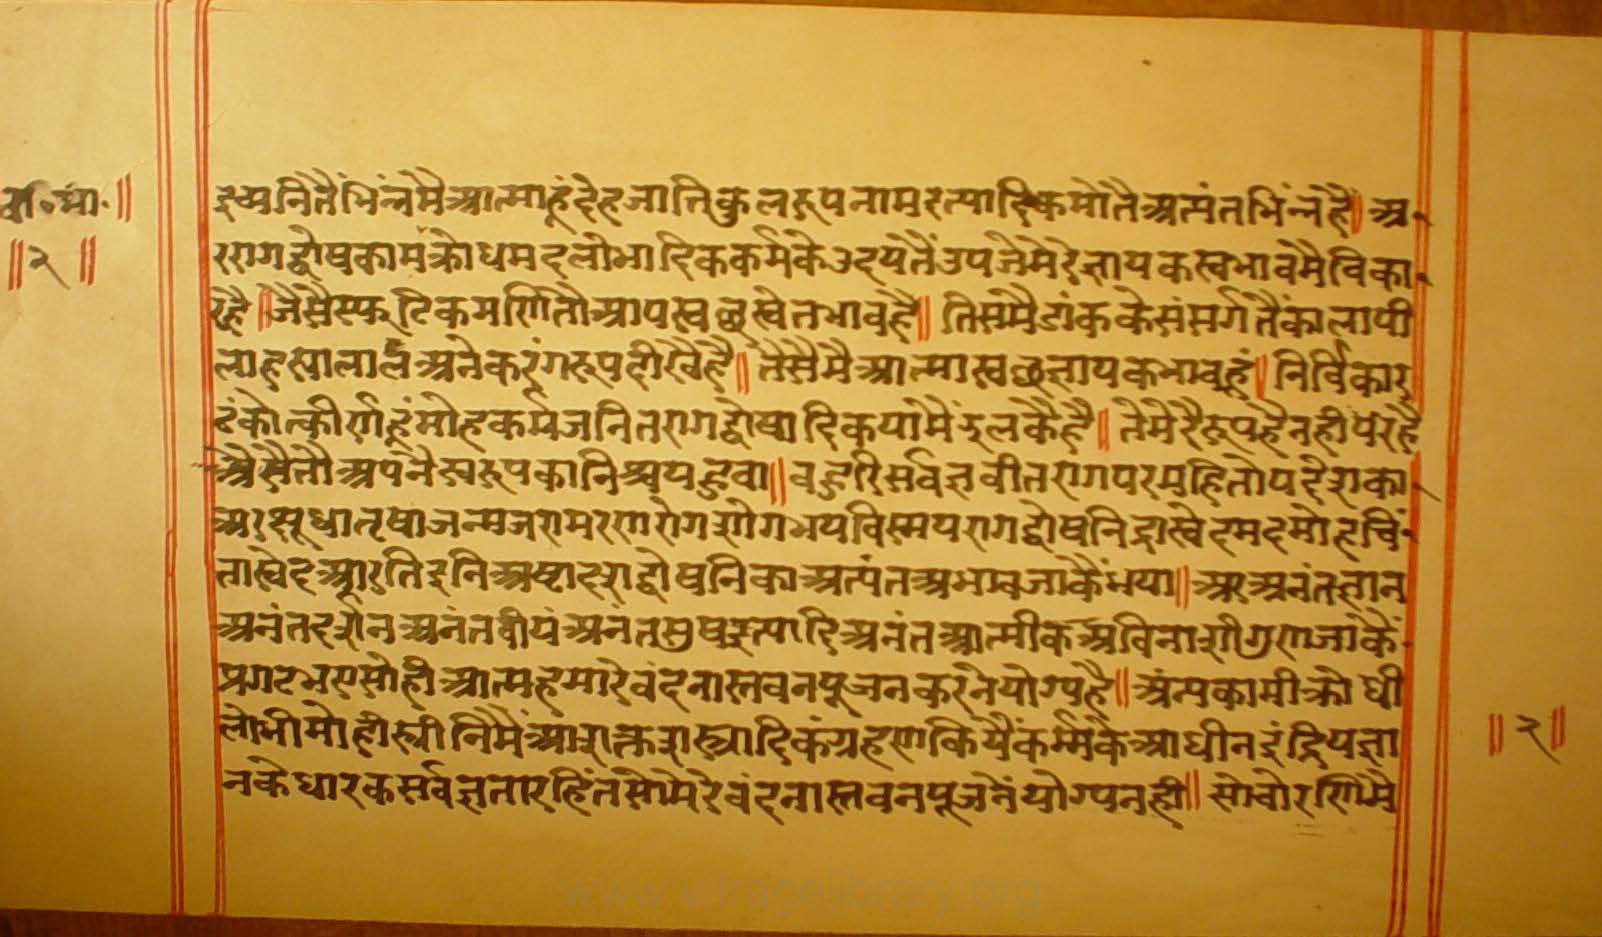 बा॰ भा॰ ॥
॥२॥
द्रव्यनितैंभिंन्नमैआत्माहूंदेहजातिकुलरूपनामइत्यादिकमोतैअत्यंतभिंन्नहै॥ अ
ररागद्वोषकामक्रोधमदलोभादिककर्मकेउदयेतैंउपजैमेरेज्ञायकस्वभावमैविका
रहै॥ जैसैस्फटिकमणितौआपस्वछस्वेतभावहै॥ तिसमैडांककेसंसर्गतैंकालापी
लाहस्यालालअनेकरंगरूपदीखैहै॥ तैसैमैआत्मास्वछज्ञायकभावहूं॥ निर्विकार
टंकोत्कीर्णहूंमोहकर्मजनितरागद्वोषादिकयामैंझलकैहै॥ तेमेरैरूपहैनहीपरहै
अैसैतौअपनैस्वरूपकानिश्चयहुवा॥ वहुरिसर्वज्ञवीतरागपरमहितोपदेशका
अरक्षूधातृषाजन्मजरामरणरोगशोगभयविस्मयरागद्वोषनिद्रास्वेदमदमोहचिं
ताखेदअरतिइनिअष्टादशदोषनिकाअत्यंतअभावजाकैंभया॥ अरअनंतज्ञान
अनंतदर्शनअनंतवीर्यअनंतसुषइत्यादिअनंतआत्मीकअविनाशीगुणजाकैं
प्रगटभएसोहीआत्महमारेवंदनास्तवनपूजनकरनेयोग्यहै॥ अंन्यकामीक्रोधी
लोभीमोहीस्त्रीनिमैंआशक्तशस्त्रादिकंग्रहणकियैंकर्म्मकेआधीनइंद्रियज्ञा
नकेधारकसर्वज्ञतारहिंतसोमेरेवंदनास्तवनपूजनेंयोग्यनही॥ सोचोरणिमै
॥२॥
www.vitragelibrary.org